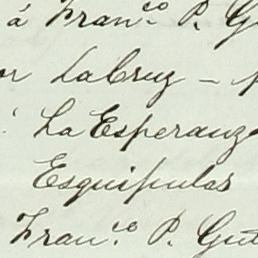 á Fran.co P. G
or La Cruz – p
La Esperanz
Esquipulas
Fran.co P. Gut